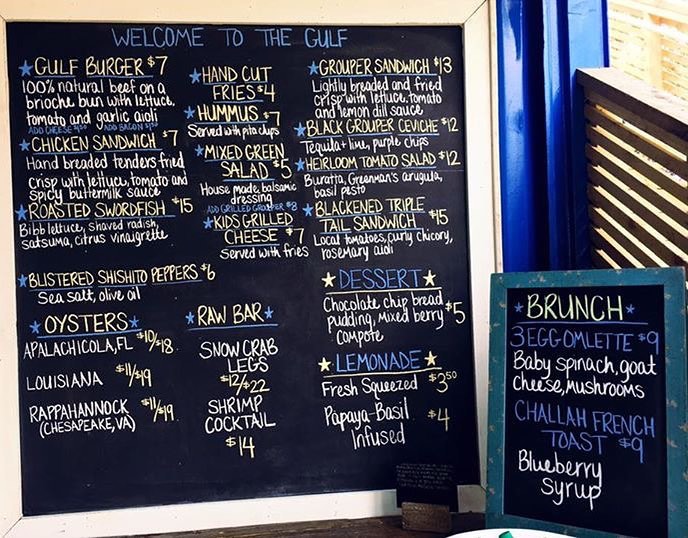 WELCOME TO THE GULF
GULF BURGER $7
100% natural beef on a
brioche bun with lettuce,
tomato and garlic aioli
CHICKEN SANDWICH $7
Hand breaded tenders fried
crisp with lettuce, tomato and
spicy buttermilk sauce
ROASTED SWORDFISH $15
Bibb lettuce, shaved radish,
satsuma, citrus vinaigrette
BLISTERED SHISHITO PEPPERS $6
Sea salt, olive oil
OYSTERS
APALACHICOLA, FL $10/$18
LOUISIANA $11/$19
RAPPAHANNOCK $11/$19
(CHESAPEAKE, VA)
HAND CUT
FRIES $4
HUMMUS $7
Served with pita chips
MIXED GREEN
SALAD $5
House made balsamic
dressing
ADD GRILLED GROUPER $8
KIDS GRILLED
CHEESE $7
Served with fries
RAW BAR
SNOW CRAB
LEGS
$12/$22
SHRIMP
COCKTAIL
$14
GROUPER SANDWICH $13
Lightly breaded and fried
crisp with lettuce, tomato
and lemon dill sauce
BLACK GROUPER CEVICHE $12
Tequila + lime, purple chips
HEIRLOOM TOMATO SALAD $12
Buratta, Greenman's arugula,
basil pesto
BLACKENED TRIPLE
TAIL SANDWICH $15
Local tomatoes, curly chicory,
rosemary aioli
DESSERT
Chocolate chip bread
pudding, mixed berry $5
compote
LEMONADE
Fresh Squeezed $3.50
Papaya-Basil $4
Infused
BRUNCH
3 EGG OMLETTE $9
Baby spinach, goat
cheese, mushrooms
CHALLAH FRENCH
TOAST $9
Blueberry
syrup